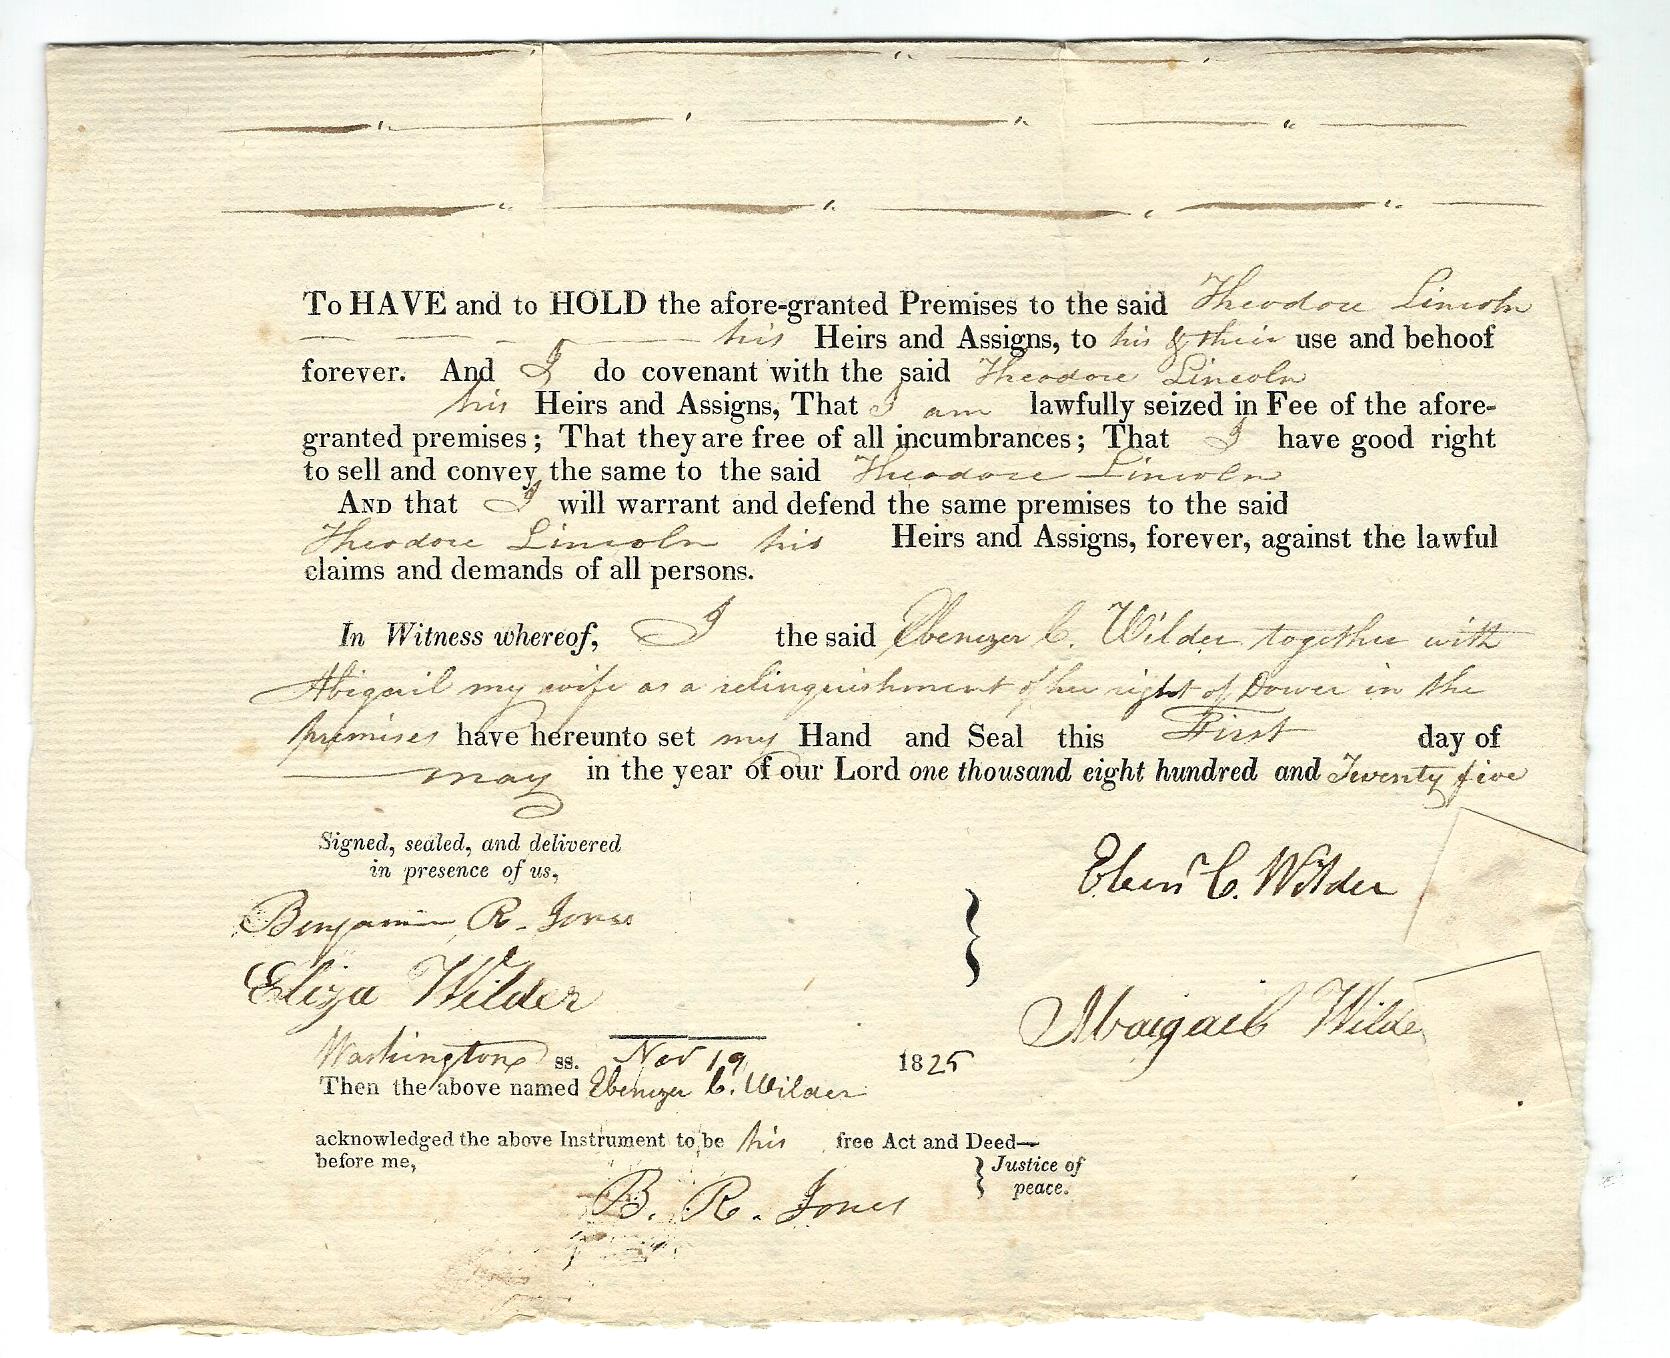 To HAVE and to HOLD the afore-granted Premises to the said Theodore Lincoln
his Heirs and Assigns, to his & their use and behoof
forever. And I do covenant with the said Theodore Lincoln
his Heirs and Assigns, That I am lawfully seized in Fee of the afore-
granted premises; That they are free of all incumbrances; That I have good right
to sell and convey the same to the said Theodore Lincoln
AND that I will warrant and defend the same premises to the said
Theodore Lincoln his Heirs and Assigns, forever, against the lawful
claims and demands of all persons.
In Witness whereof, I the said Ebenezer C. Wilder together with
Abigail my wife as a relinquishment of her right of Dower in the
premises have hereunto set my Hand and Seal this First day of
may in the year of our Lord one thousand eight hundred and Twenty five
Signed, sealed, and delivered
in presence of us,
Eben C. Wilder
Benjamin R. Jones
Eliza Wilder
Abaigail Wilde
Washington ss. Nov 19 1825
Then the above named Ebenezer C. Wilder
acknowledged the above Instrument to be his free Act and Deed—
before me,
Justice of
peace.
B. R. Jones